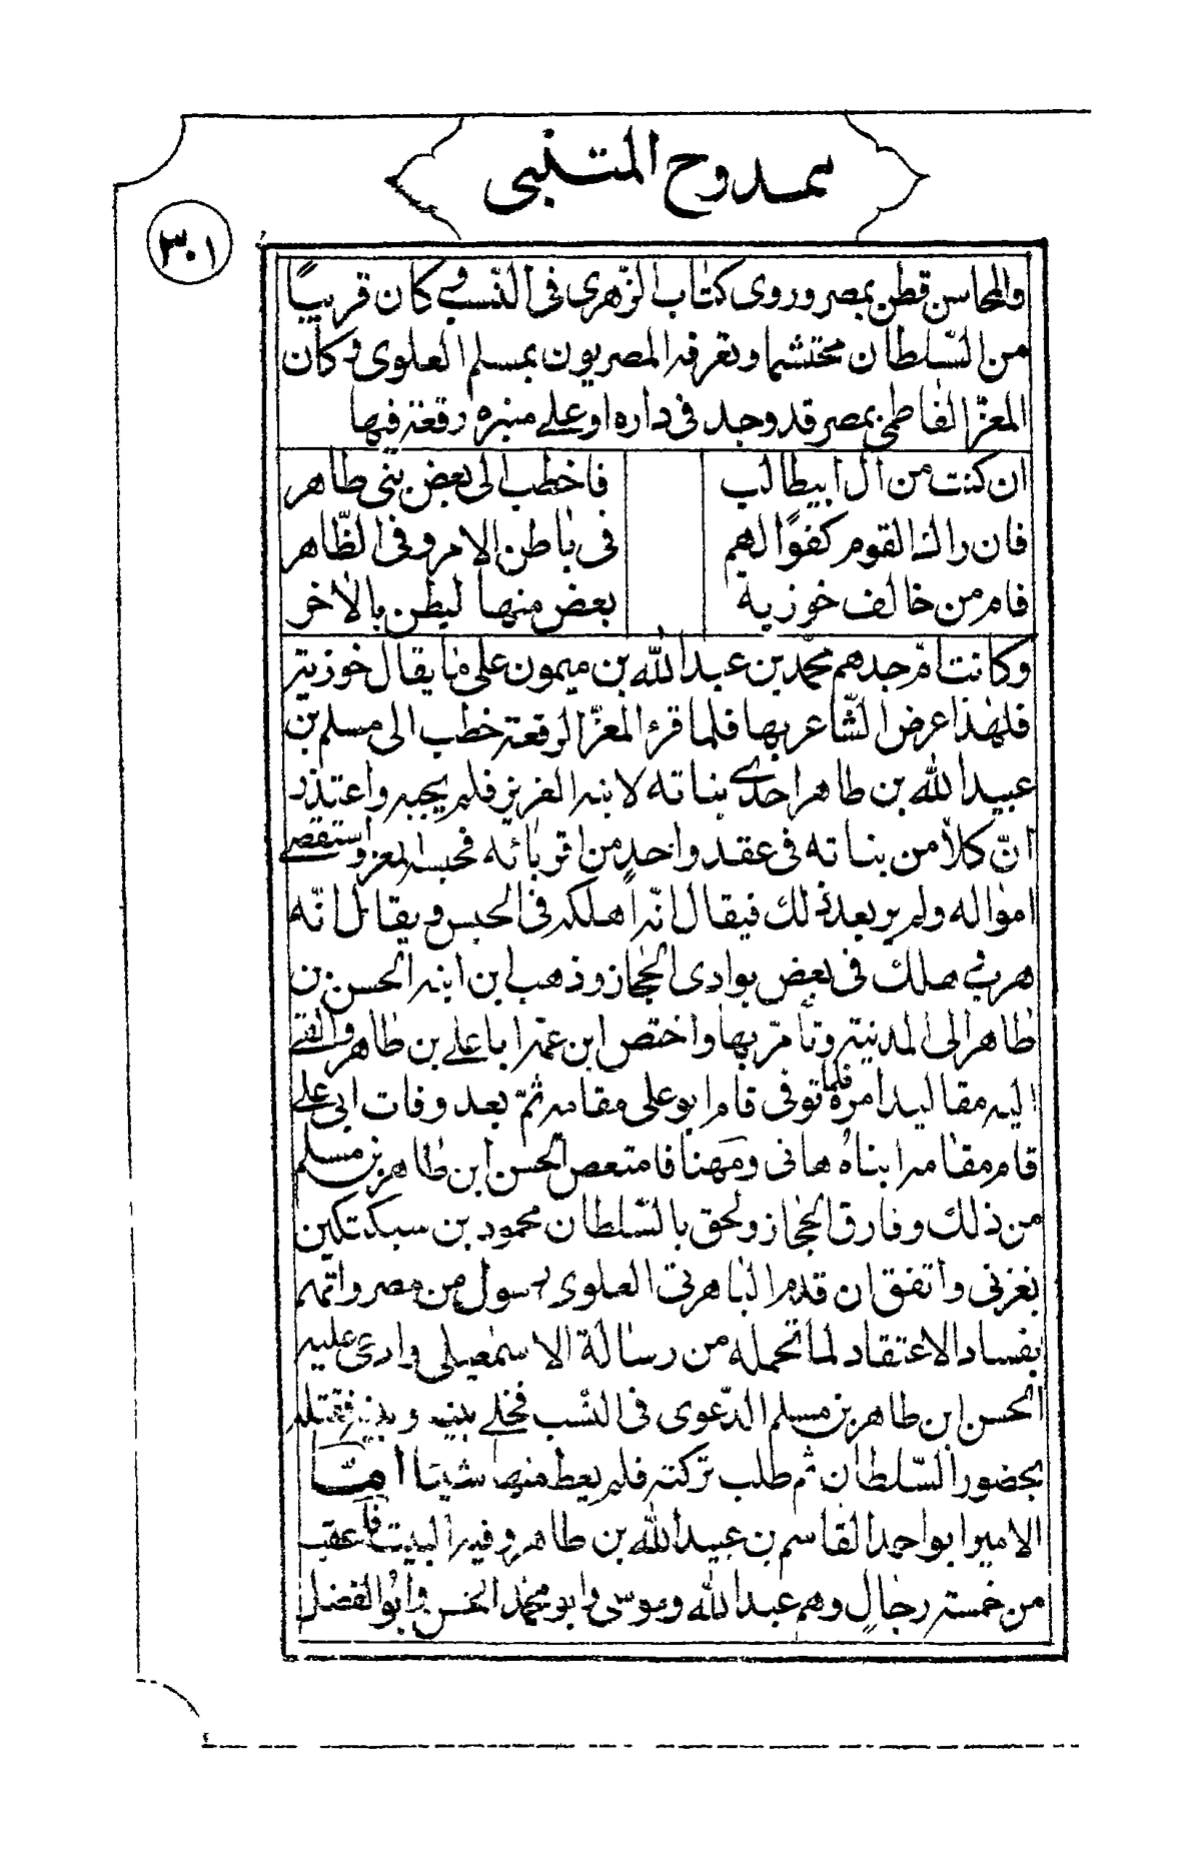 ممدوح المتنبی
٣٠١
والمحاسن قطن بمصر وروی کتاب الزّهری فی النّسب و کان قریبًا
من السّلطان محتشما و تعرفه المصریون بمسلم العلوی و کان
المعزّ الفاطمی بمصر قد وجد فی داره او علی منبره رقعة فیها
ان کنت من آل ابیطالب فاخطب الی بعض بنی طاهر
فان راك القوم کفوًا لهم فی باطن الامر و فی الظّاهر
فام من خالف خوزیة بعض منها لبظر بالاخر
و کانت امّ جدهم محمّد بن عبد الله بن میمون علی ما یقال خوزیة
فلهذا عرض الشّاعر بها فلما قرء المعزّ الرقعة خطب الی مسلم بن
عبید الله بن طاهر احدی بناته لابنه العزیز فلم یجبه و اعتذر
انّ کلاًّ من بناته فی عقد واحد من اقربائه فحبسه المعز و استقصی
امواله ولم یر بعد ذلك فیقال انّه اهلکه فی الحبس و یقال انّه
هرب و هلك فی بعض بوادی الحجاز و ذهب ابن ابنه الحسن بن
طاهر الی المدینة و تأمّر بها و اختص ابن عمّه ابا علی بن طاهر والقی
الیه مقالید امره فلما توفی قام ابو علی مقامه ثمّ بعد وفات ابی علی
قام مقامه ابناه هانی و مهنا فامتعص الحسن ابن طاهر بن مسلم
من ذلك و فارق الحجاز و لحق بالسّلطان محمود بن سبکتکین
بغزنی و اتفق ان قدم الباهرتی العلوی رسول من مصر و اتّهم
بفساد الاعتقاد لما تحمله من رسالة الاسمعیلی و ادعی علیه
الحسن ابن طاهر بن مسلم الدّعوی فی النّسب فخلی بینه و بینه فقتله
بحضور السّلطان ثم طلب ترکته فلم یعط منها شیئا امّا
الامیر ابو احمد القاسم بن عبید الله بن طاهر و فیه البیت فاعقب
من خمسة رجال و هم عبد الله و موسی و ابو محمّد الحسن و ابو الفضل